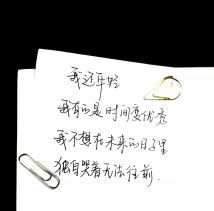 我还年轻
我有的是时间变优秀
我不想在未来的日子里
独自哭着无法往前.